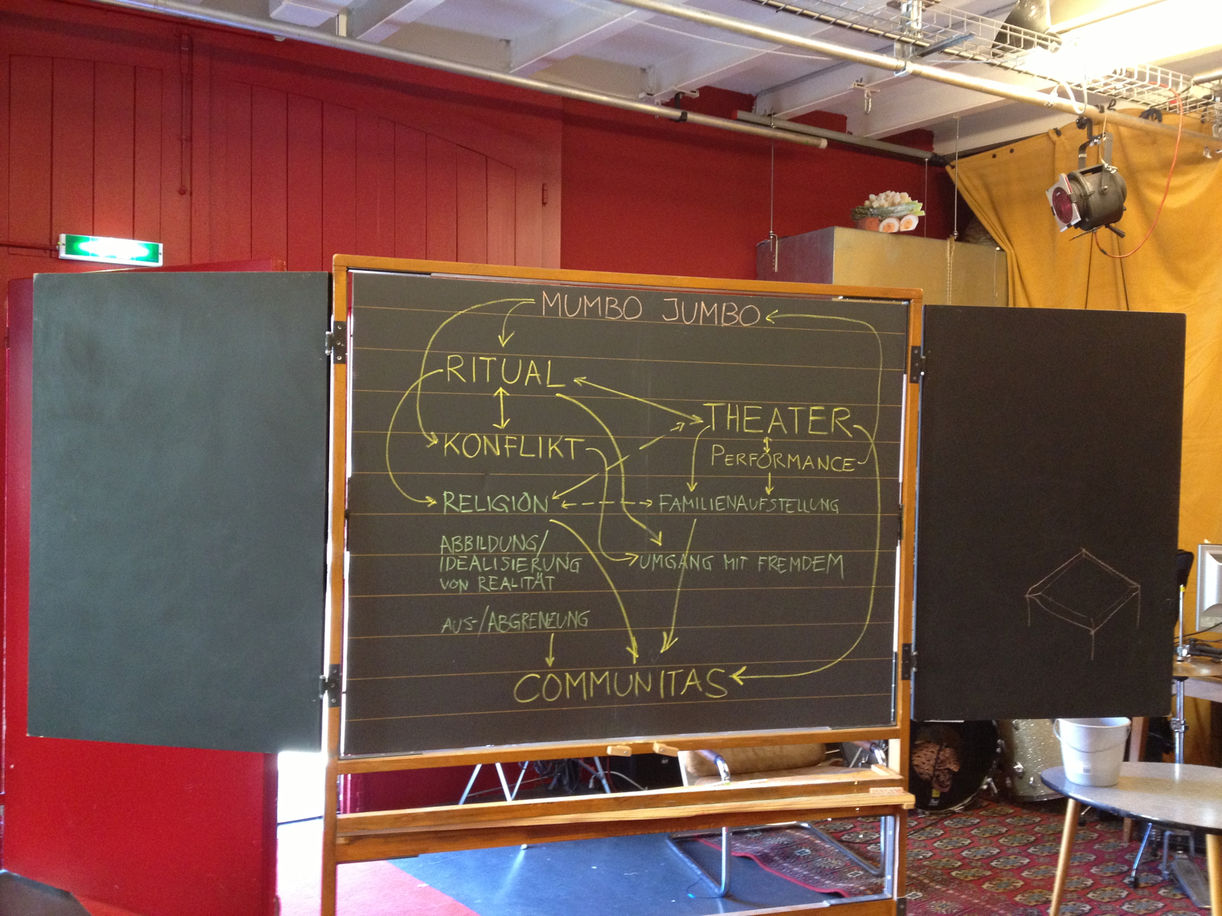 MUMBO JUMBO
RITUAL
THEATER
KONFLIKT
PERFORMANCE
RELIGION
FAMILIENAUFSTELLUNG
ABBILDUNG/
IDEALISIERUNG
VON REALITÄT
UMGANG MIT FREMDEM
AUS-/ABGRENZUNG
COMMUNITAS